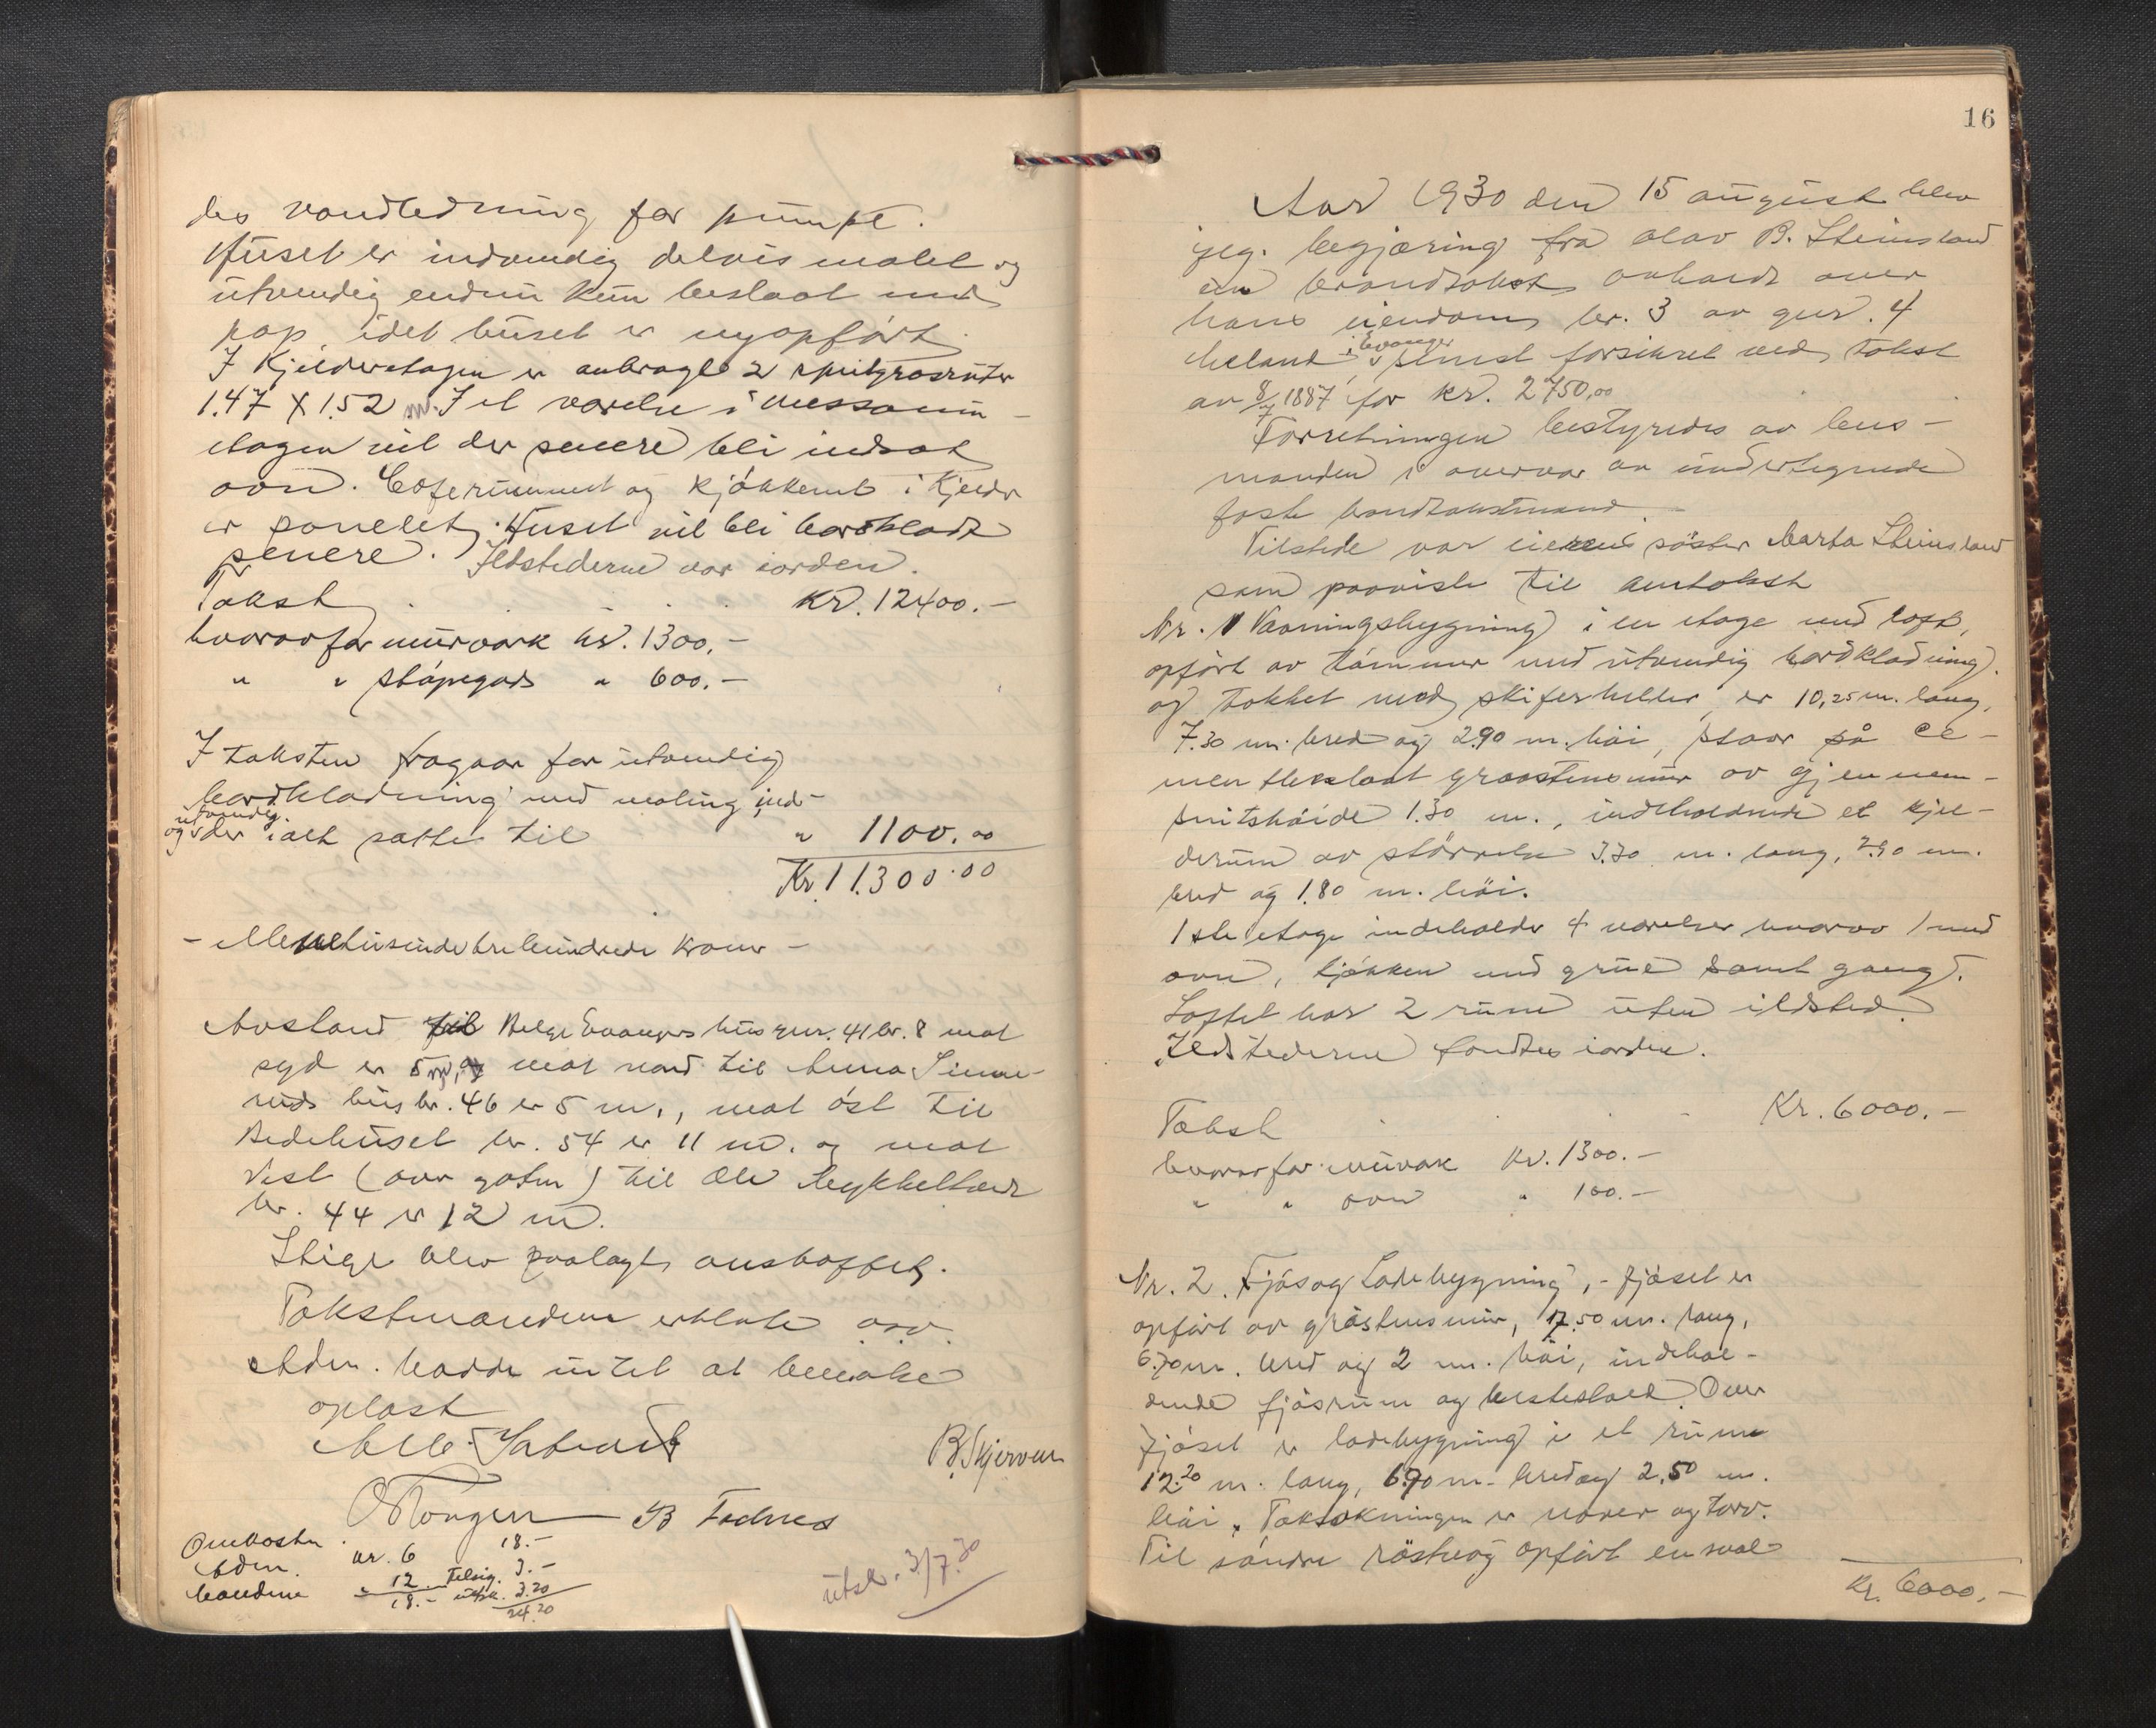 des vandledning før pumpe.
Huset er indvendig delvis malet og
utvendig endnu kun beslaat med
pap, idet huset er nyopført.
I Kjelderetagen er anbragt 2 speilglasruter
1.47 X 1.52 m. I et værelse i messanin-
etagen vil der senere bli indsat
ovn. Caferummet og kjøkkenet i Kjelder
er panelet. Huset vil bli bordklædt
senere. Ildstederne var iorden.
Takst . . . . Kr. 12400.-
hvorav for murværk kr. 1300.-
" " støpegods " 600.-
I taksten fragaar for utvendig
bordklædning med maling ind-
og utvendig
der ialt sattes til " 1100.00
Kr. 11.300.00
- Elleve tusinde trehundrede kroner -
Avstand til Helge Evangers hus gnr. 41 br. 8 mot
syd er 5 m, og mot nord til Anna Simme-
nes hus br. 46 er 5 m., mot øst til
Bedehuset br. 54 er 11 m. og mot
Vest (over gaten) til Ole
br. 44 er 12 m.
Stige blev paalagt anskaffet.
Takstmændene erklærte osv.
Adm. hadde intet at bemærke
oplæst
B. Skjerven
Omkostn.
Adm. kr. 6 18.-
Mændene " 12 Tilsig. 3.-
18.- utsk. 3.20
24.20
utsk. 3/7.30
16
Aar 1930 den 15 august blev
efter begjæring fra Olav B. Steinsland
en brandtakst avholdt over
hans eiendom br. 3 av gnr. 4
i Evanger
senest forsikret ved takst
av 8/7 1887 for kr. 2750,00
Forretningen bestyredes av lens-
manden i overvær av undertegnede
faste brandtakstmænd.
Tilstede var eierens søster Marta Steinsland
som paaviste til
Nr. 1 Vaaningsbygning i en etage med loft,
opført av tømmer med utvendig bordklædning
og tækket med skiferheller, er 10,25 m. lang,
7.30 m. bred og 2.90 m. høi, staar på ce-
ment graastensmur av gjennem-
snitshøide 1.30 m., indeholdende et kjel-
derrum av størrelse 3.30 m. lang, 2.90 m.
bred og 1.80 m. høi.
1ste etage indeholder 4 værelser hvorav 1 med
ovn, kjøkken med grue samt gang.
Loftet har 2 rum uten ildsted.
Ildstederne fandtes iorden.
Takst . . . Kr. 6000.-
hvorav for murværk Kr. 1300.-
" " ovn " 100.-
Nr. 2. Fjøs og Ladebygning, - fjøset er
opført av gråstensmur, 17.50 m. lang,
6.70 m. bred og 2 m. høi, indehol-
dende fjøsrum og hestestald. Over
fjøset er ladebygning i et rum
12.20 m. lang, 6.70 m. bred og 2.50 m.
høi. Taktækningen er næver og torv.
Til søndre røstveg opført en sval
Kr. 6000,-